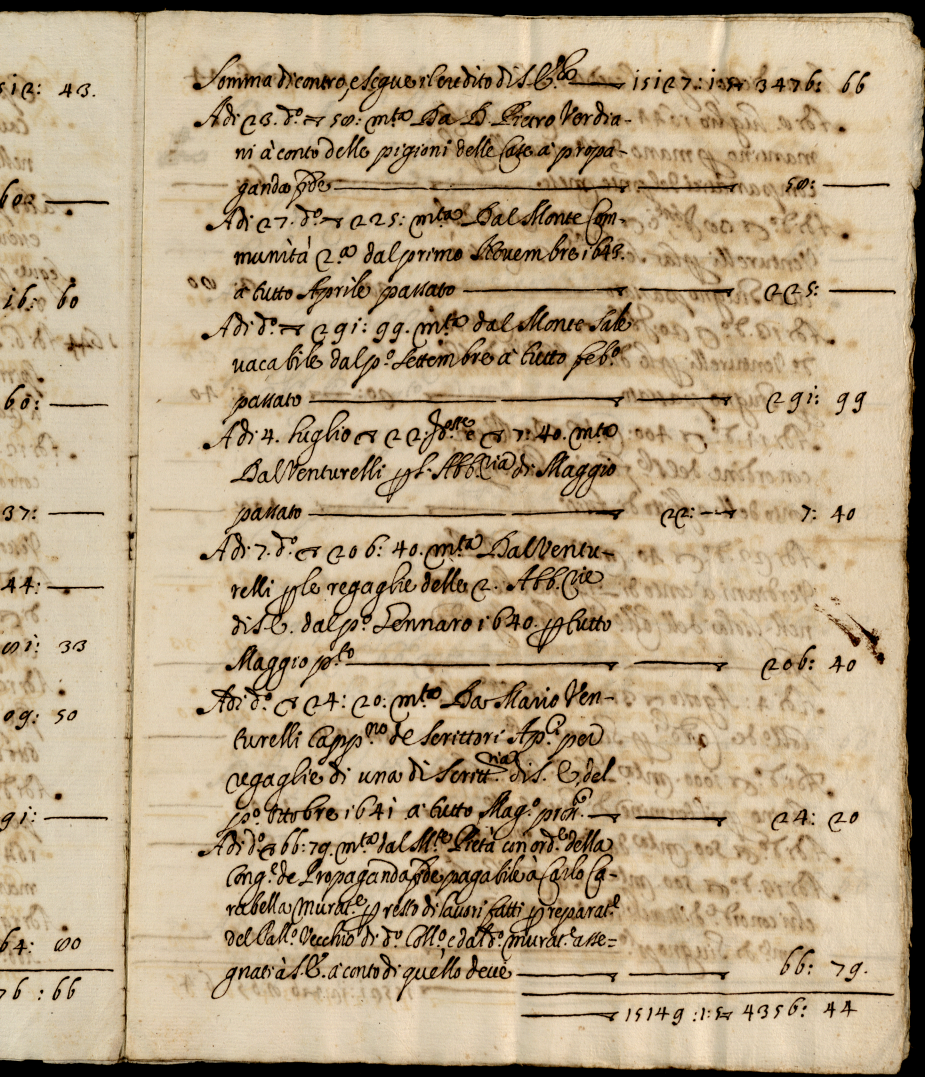 512: 43.
60:
16: 60
60:
37:
44:
81: 33
09: 50
91:
64: 00
76: 66
Somma di contro, e segue il credito di S. E. 15127: 15 ▽ 3476: 66
Adi 23. d.º ▽ 58: m.ta Da D. Pietro Verdia-
ni à conto delle pigioni delle Case a propa-
ganda fide 58:
Adi 27. d.º ▽ 225: m.ta Dal Monte Com-
munità 2.a dal primo Novembre 1645.
a tutto Aprile passato 225:
Adi d.º ▽ 291: 99. m.ta dal Monte Sale
vacabile dal p.º Settembre a tutto feb.º
passato 291: 99
Adi 4. luglio ▽ 22: e ▽ 7: 40. m.ta
Dal Venturelli p l'Abb.ria di Maggio
passato 22: 7: 40
Adi 7. d.º ▽ 206: 40. m.ta Dal Ventu-
relli p le regaglie delle 2. Abb.rie
di S. E. dal p.º Gennaro 1640. p tutto
Maggio p.to 206: 40
Adi d.º ▽ 24: 20: m.ta Da Mario Ven-
turelli Capp.no de Scrittori Ap.ci per
regaglie di una di Scritt.ria di S. E. del
p.º Ottobre 1641 a tutto Mag.º 24: 20
Adi d.º ▽ 66: 79. m.ta dal M.te Pietà con ord.e della
Cong.e de Propaganda fide pagabile à Carlo Ca-
rabella Murat.e p resto di lavori fatti p reparat.e
del Pall.º Vecchio di d.º Coll.º, e dal d.º murat.e asse-
gnati à S. E. à conto di quello deve 66: 79.
15149: 15 ▽ 4356: 44